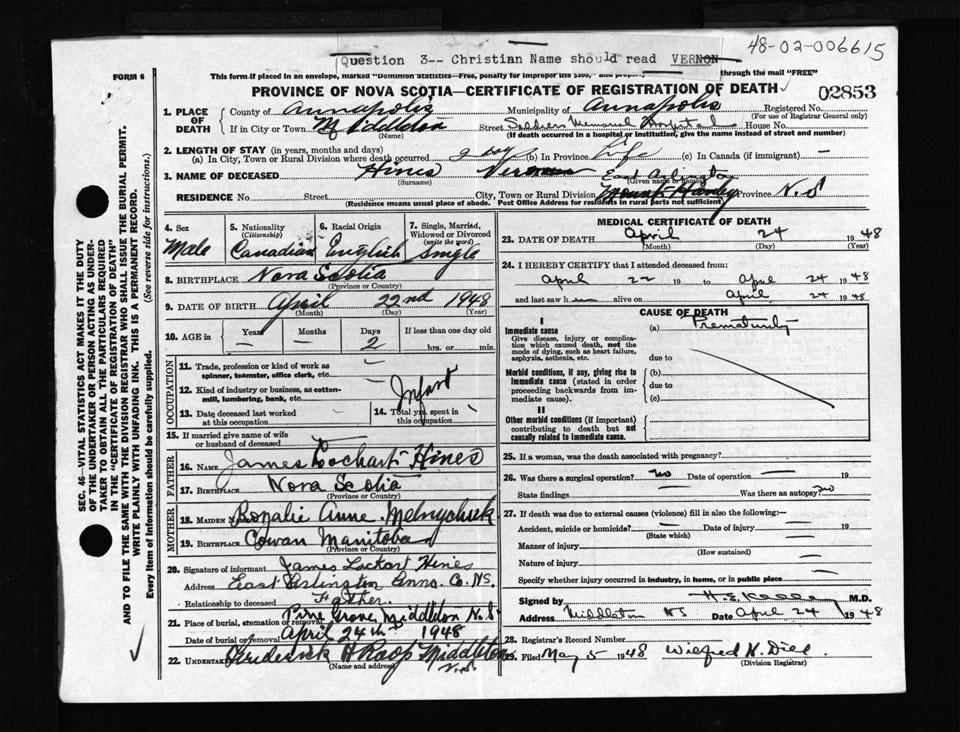 48-02-006615
Question 3-- Christian Name should read VERNON
FORM 6
This form if placed in an envelope, marked "Dominion Statistics—Free, penalty for improper use $300," and through the mail "FREE"
PROVINCE OF NOVA SCOTIA—CERTIFICATE OF REGISTRATION OF DEATH
02853
1. PLACE OF DEATH
County of Annapolis Municipality of Annapolis Registered No.
(For use of Registrar General only)
If in City or Town Middleton Street Soldiers Memorial Hospital House No.
(Name) (If death occurred in a hospital or institution, give the name instead of street and number)
2. LENGTH OF STAY (in years, months and days)
(a) In City, Town or Rural Division where death occurred 2 day (b) In Province Life (c) In Canada (if immigrant) —
3. NAME OF DECEASED Hines Vernon
(Surname) (Given name or names)
East Arlington
RESIDENCE No. Street City, Town or Rural Division Mount Hanley Province N.S
(Residence means usual place of abode. Post Office Address for residents in rural parts not sufficient)
4. Sex
Male
5. Nationality
(Citizenship)
Canadian
6. Racial Origin
English
7. Single, Married, Widowed or Divorced
(write the word)
Single
8. BIRTHPLACE Nova Scotia
(Province or Country)
9. DATE OF BIRTH April 22nd 1948
(Month) (Day) (Year)
10. AGE in Years Months Days If less than one day old
— — 2 hrs. or min.
OCCUPATION
11. Trade, profession or kind of work as spinner, teamster, office clerk, etc. —
12. Kind of industry or business, as cotton-mill, lumbering, bank, etc.
Infant
13. Date deceased last worked at this occupation
14. Total yrs. spent in this occupation
15. If married give name of wife or husband of deceased
FATHER
16. NAME James Lochart Hines
17. BIRTHPLACE Nova Scotia
(Province or Country)
MOTHER
18. MAIDEN NAME Rozalie Anne Melnychuk
19. BIRTHPLACE Cowan Manitoba
(Province or Country)
20. Signature of informant James Lockart Hines
Address East Arlington Anna. Co. NS.
Relationship to deceased Father.
21. Place of burial, cremation or removal Pine Grove Middleton N.S
Date of burial or removal April 24th 1948
22. Undertaker Frederick A Roop Middleton
(Name and address) N.S.
MEDICAL CERTIFICATE OF DEATH
23. DATE OF DEATH April 24 1948
(Month) (Day) (Year)
24. I HEREBY CERTIFY that I attended deceased from:
April 22 19 to April 24 1948
and last saw h alive on April 24 1948
CAUSE OF DEATH
I
Immediate cause (a) Prematurity
Give disease, injury or complication which caused death, not the mode of dying, such as heart failure, asphyxia, asthenia, etc.
due to
Morbid conditions, if any, giving rise to immediate cause (stated in order proceeding backwards from immediate cause).
(b)
due to
(c)
II
Other morbid conditions (if important) contributing to death but not causally related to immediate cause.
25. If a woman, was the death associated with pregnancy?
26. Was there a surgical operation? no Date of operation — 19
State findings Was there an autopsy? no
27. If death was due to external causes (violence) fill in also the following:—
Accident, suicide or homicide? — Date of injury — 19
(State which)
Manner of injury
(How sustained)
Nature of injury
Specify whether injury occurred in industry, in home, or in public place
Signed by M.D.
Address Middleton NS Date April 24 1948
28. Registrar's Record Number
29. Filed May 5 1948 Wilfred H. Diel
(Division Registrar)
SEC. 46—VITAL STATISTICS ACT MAKES IT THE DUTY
OF THE UNDERTAKER OR PERSON ACTING AS UNDER-
TAKER TO OBTAIN ALL THE PARTICULARS REQUIRED
IN THE "CERTIFICATE OF REGISTRATION OF DEATH"
AND TO FILE THE SAME WITH THE DIVISION REGISTRAR WHO SHALL ISSUE THE BURIAL PERMIT.
WRITE PLAINLY WITH UNFADING INK. THIS IS A PERMANENT RECORD.
Every item of information should be carefully supplied. (See reverse side for instructions.)